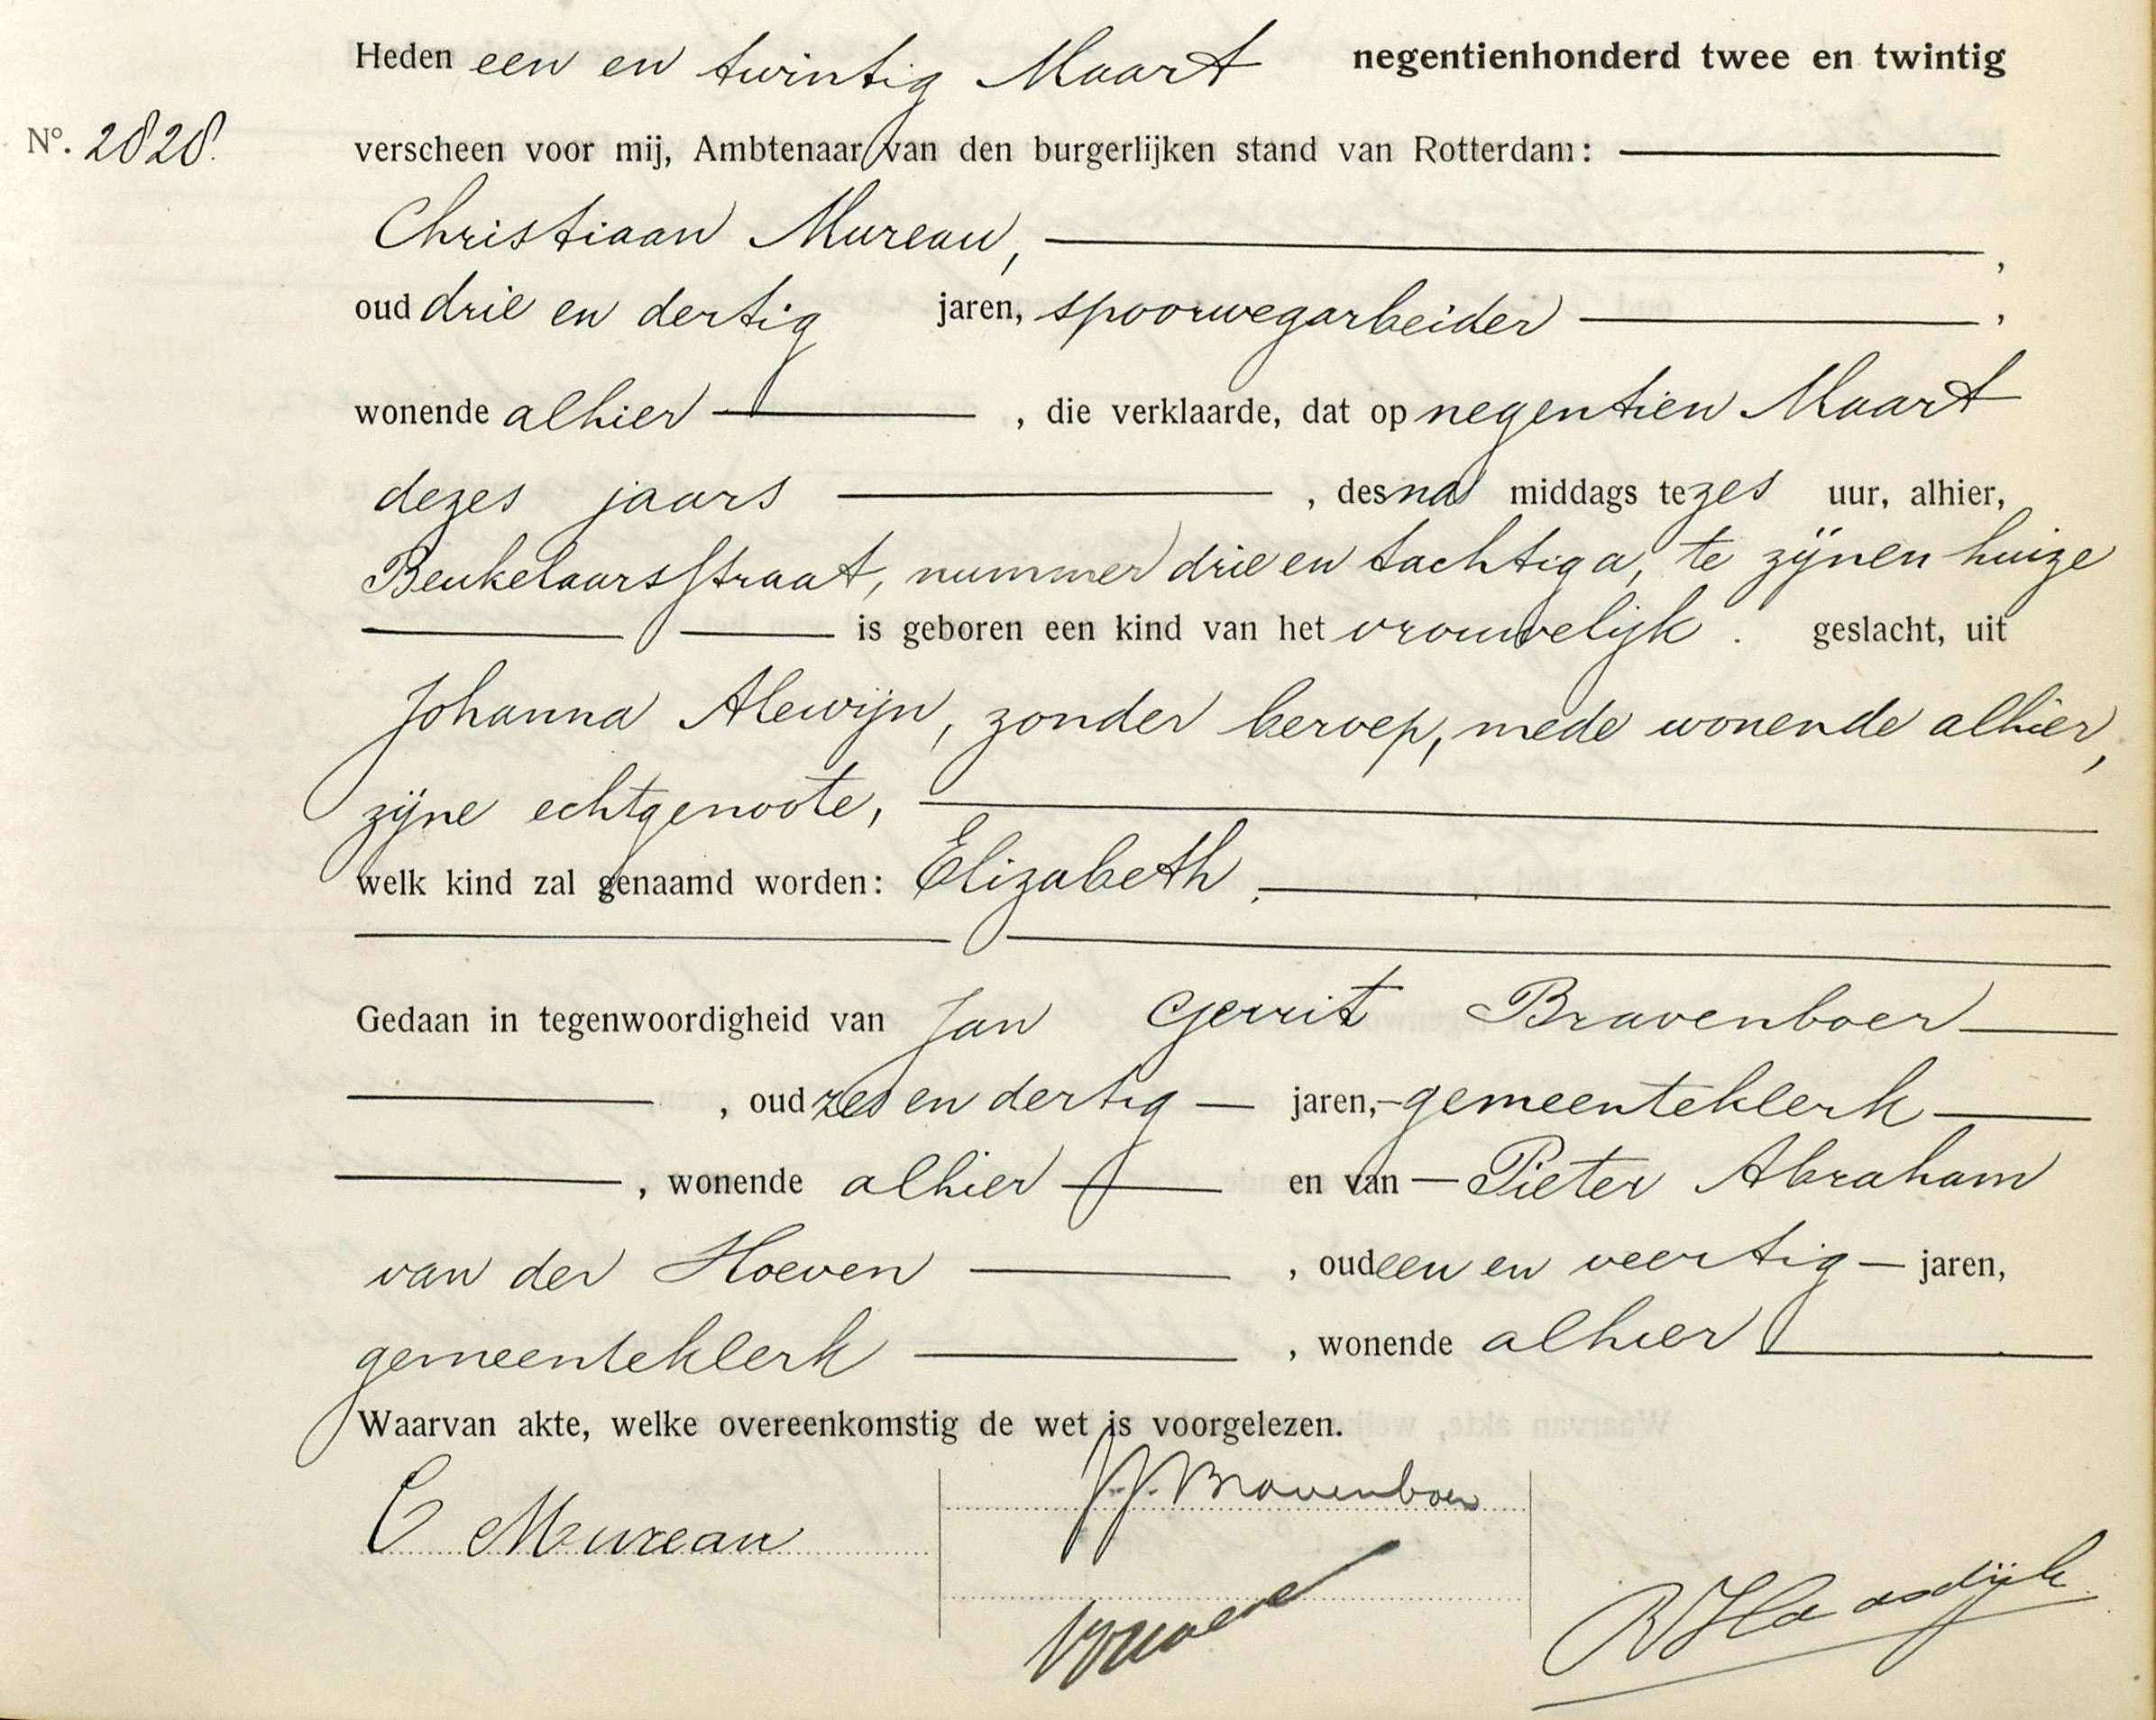 Heden een en twintig Maart negentienhonderd twee en twintig
No. 2828. verscheen voor mij, Ambtenaar van den burgerlijken stand van Rotterdam:
Christiaan Mureau,
oud drie en dertig jaren, spoorwegarbeider
wonende alhier, die verklaarde, dat op negentien Maart
dezes jaars, des na middags te zes uur, alhier,
Beukelaarsstraat, nummer drie en tachtig a, te zijnen huize
is geboren een kind van het vrouwelijk. geslacht, uit
Johanna Alewijn, zonder beroep, mede wonende alhier,
zijne echtgenoote,
welk kind zal genaamd worden: Elizabeth.
Gedaan in tegenwoordigheid van Jan Gerrit Bravenboer
, oud zes en dertig jaren, gemeenteklerk
, wonende alhier en van Pieter Abraham
van der Hoeven, oud een en veertig jaren,
gemeenteklerk, wonende alhier
Waarvan akte, welke overeenkomstig de wet is voorgelezen.
C Mureau
J.G. Bravenboer